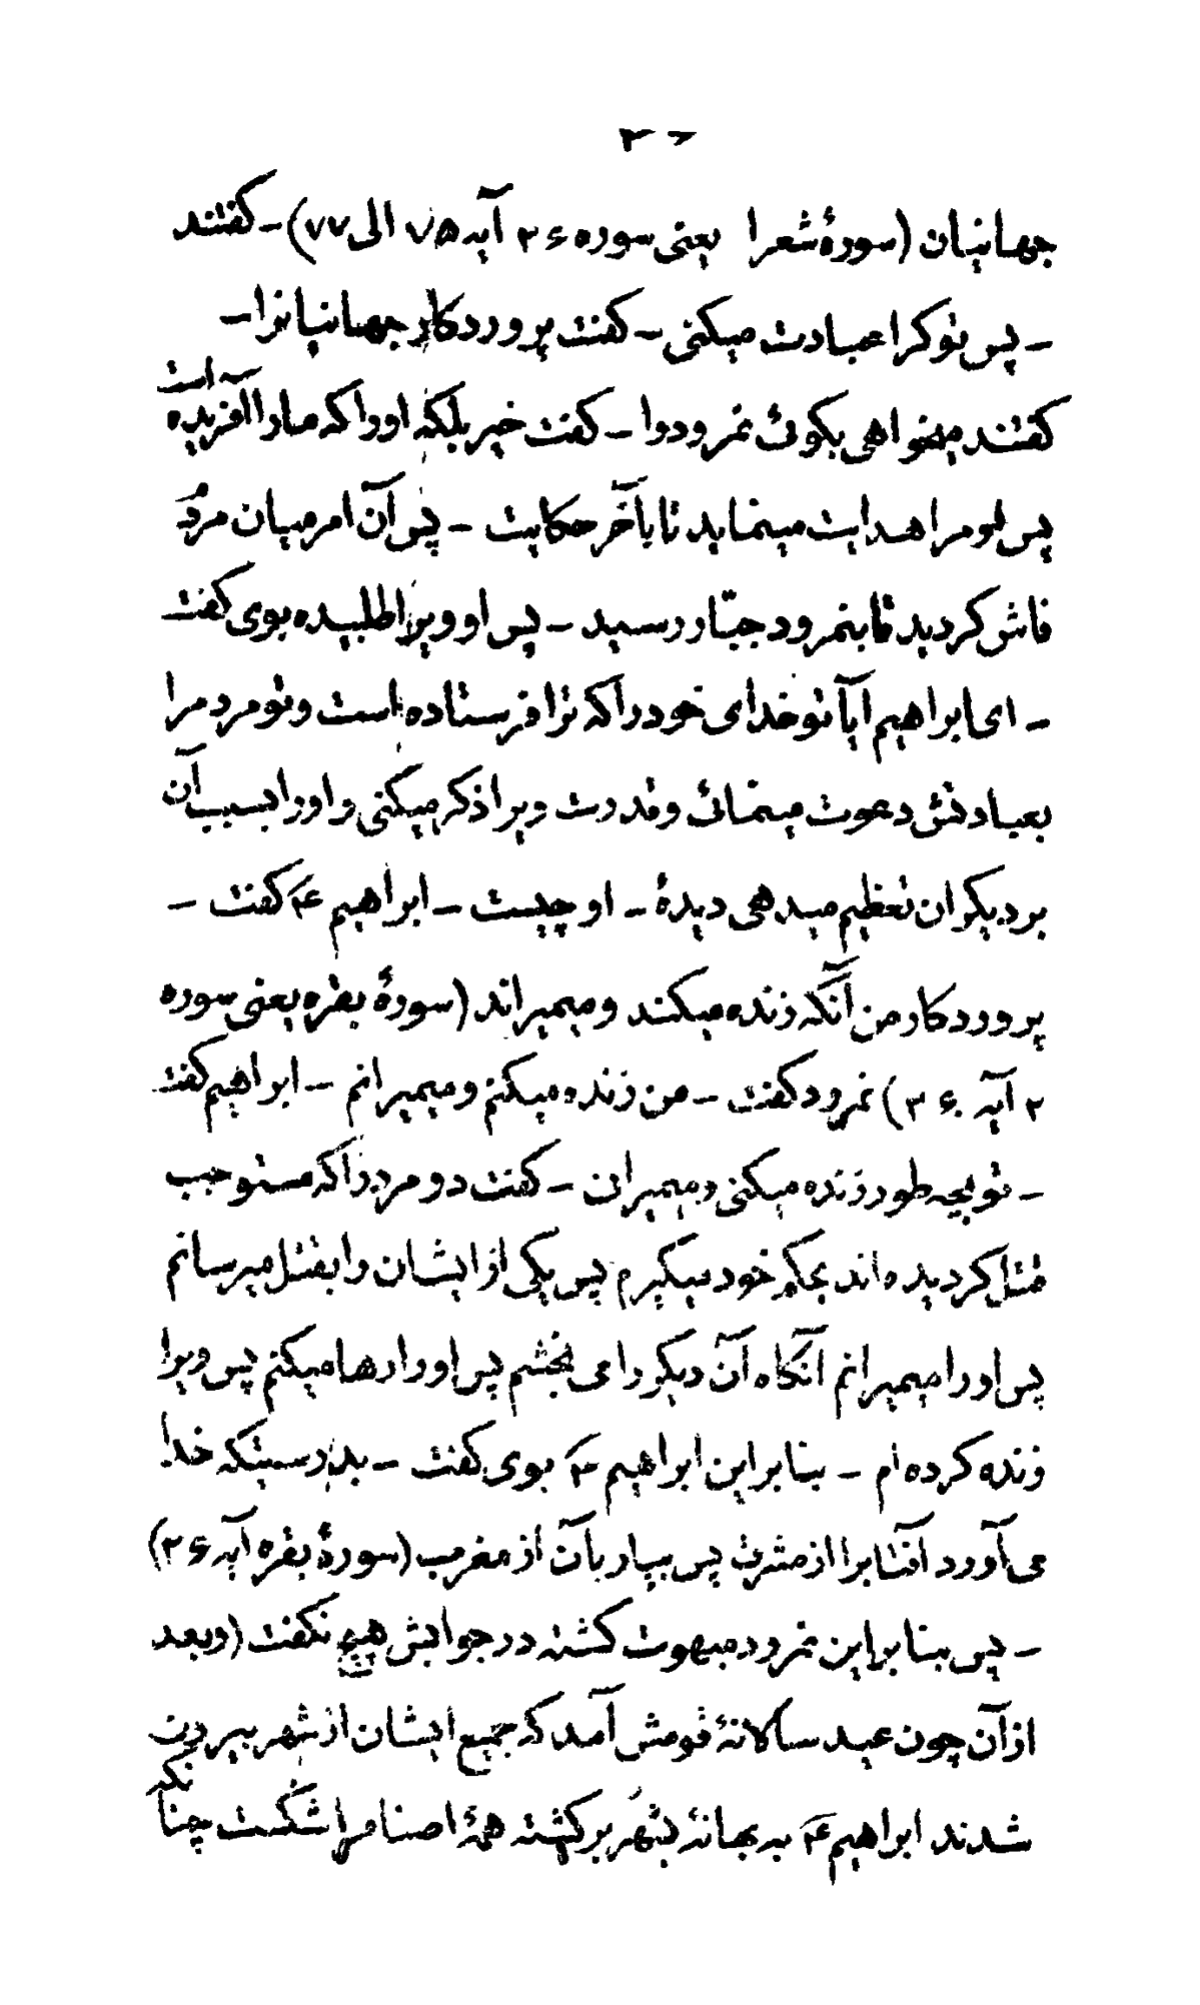 جهانیان (سورهٔ شعرا یعنی سوره ۲۶ آیه ۷۵ الی ۷۷) - گفتند
- پس تو کرا عبادت میکنی - گفت پروردگار جهانیانرا -
گفتند میخواهی بگوئی نمرودرا - گفت خیر بلکه اوراکه مارا آفریده است
پس او مرا هدایت مینماید تا بآخر حکایت - پس آن امر میان مردم
فاش گردید تا بنمرود جبّار رسید - پس او ویرا طلبیده بوی گفت
- ای ابراهیم آیا تو خدای خودرا که ترا فرستاده است و تو مردمرا
بعبادتش دعوت مینمائی و قدرت ویرا ذکر میکنی و اورا بسبب آن
بر دیگران تعظیم میدهی دیدهٔ - او چیست - ابراهیم ع گفت -
پروردگار من آنکه زنده میکند و میمیراند (سورهٔ بقره یعنی سوره
۲ آیه ۲۶۰) نمرود گفت - من زنده میکنم و میمیرانم - ابراهیم گفت
- تو بچه طور زنده میکنی و میمیرانی - گفت دو مردرا که مستوجب
قتل گردیده اند بحکم خود میگیرم پس یکی از ایشان را بقتل میرسانم
پس اورا میمیرانم آنگاه آن دیگر را می بخشم پس اورا رها میکنم پس ویرا
زنده کرده ام - بنابراین ابراهیم ع بوی گفت - بدرستیکه خدا
می آورد آفتابرا از مشرق پس بیار بآن از مغرب (سورهٔ بقره آیه ۲۶)
- پس بنابراین نمرود مبهوت گشته در جوابش هیچ نگفت (و بعد
از آن چون عید سالانهٔ قومش آمد که جمیع ایشان از شهر بیرون
شدند ابراهیم ع به بهانهٔ بشهر برگشته همهٔ اصنامرا شکست چنانکه